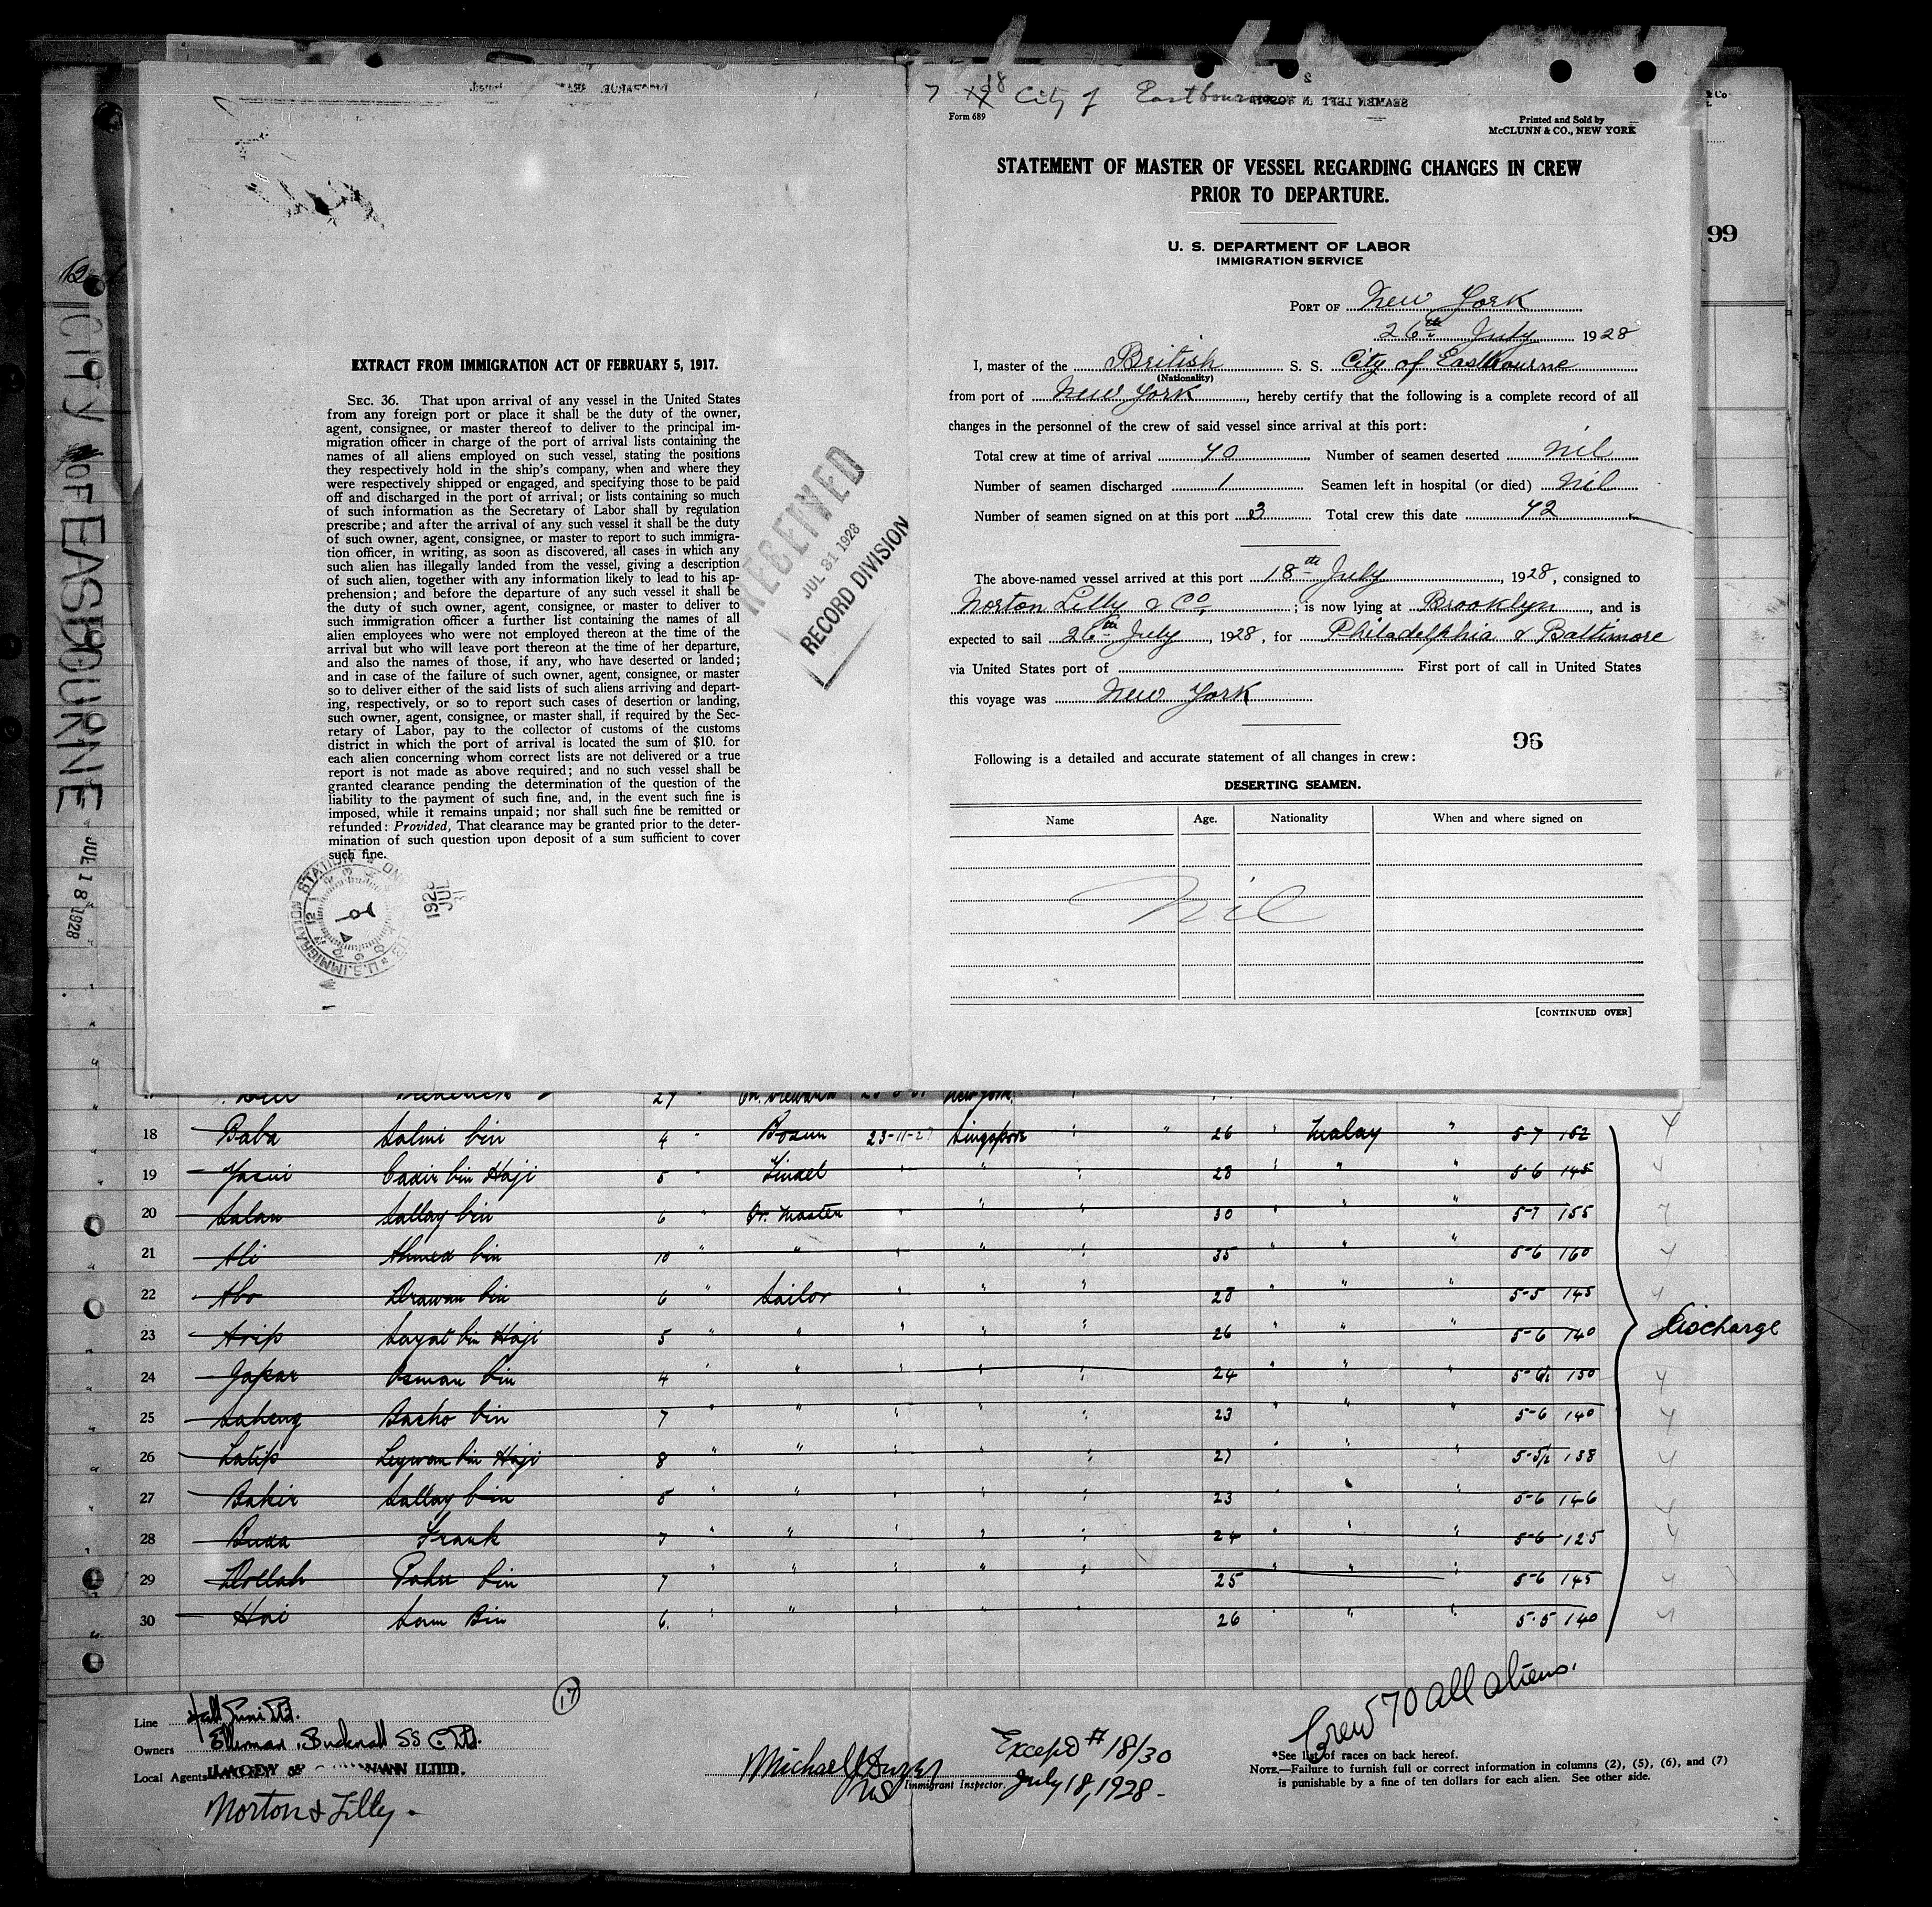 CITY OF EASTBOURNE
JUL 18 1928
EXTRACT FROM IMMIGRATION ACT OF FEBRUARY 5, 1917.
SEC. 36. That upon arrival of any vessel in the United States
from any foreign port or place it shall be the duty of the owner,
agent, consignee, or master thereof to deliver to the principal im-
migration officer in charge of the port of arrival lists containing the
names of all aliens employed on such vessel, stating the positions
they respectively hold in the ship's company, when and where they
were respectively shipped or engaged, and specifying those to be paid
off and discharged in the port of arrival; or lists containing so much
of such information as the Secretary of Labor shall by regulation
prescribe; and after the arrival of any such vessel it shall be the duty
of such owner, agent, consignee, or master to report to such immigra-
tion officer, in writing, as soon as discovered, all cases in which any
such alien has illegally landed from the vessel, giving a description
of such alien, together with any information likely to lead to his ap-
prehension; and before the departure of any such vessel it shall be
the duty of such owner, agent, consignee, or master to deliver to
such immigration officer a further list containing the names of all
alien employees who were not employed thereon at the time of the
arrival but who will leave port thereon at the time of her departure,
and also the names of those, if any, who have deserted or landed;
and in case of the failure of such owner, agent, consignee, or master
so to deliver either of the said lists of such aliens arriving and depart-
ing, respectively, or so to report such cases of desertion or landing,
such owner, agent, consignee, or master shall, if required by the Sec-
retary of Labor, pay to the collector of customs of the customs
district in which the port of arrival is located the sum of $10. for
each alien concerning whom correct lists are not delivered or a true
report is not made as above required; and no such vessel shall be
granted clearance pending the determination of the question of the
liability to the payment of such fine, and, in the event such fine is
imposed, while it remains unpaid; nor shall such fine be remitted or
refunded: Provided, That clearance may be granted prior to the deter-
mination of such question upon deposit of a sum sufficient to cover
such fine.
RECEIVED
JUL 31 1928
RECORD DIVISION
U.S. IMMIGRATION STATION
1928 JUL 31
7 18 City of Eastbourne
SEAMEN LEFT IN HOSPITAL
Form 689
Printed and Sold by
McCLUNN & CO., NEW YORK
STATEMENT OF MASTER OF VESSEL REGARDING CHANGES IN CREW
PRIOR TO DEPARTURE.
U. S. DEPARTMENT OF LABOR
IMMIGRATION SERVICE
PORT OF New York
26th July 1928
I, master of the British S. S. City of Eastbourne
(Nationality)
from port of New York, hereby certify that the following is a complete record of all
changes in the personnel of the crew of said vessel since arrival at this port:
Total crew at time of arrival 40 Number of seamen deserted nil
Number of seamen discharged 1 Seamen left in hospital (or died) Nil
Number of seamen signed on at this port 3 Total crew this date 42
The above-named vessel arrived at this port 18th July, 1928, consigned to
Norton Lilly & Co.; is now lying at Brooklyn, and is
expected to sail 26th July, 1928, for Philadelphia & Baltimore
via United States port of First port of call in United States
this voyage was New York
96
Following is a detailed and accurate statement of all changes in crew:
DESERTING SEAMEN.
Name Age. Nationality When and where signed on
Nil
[CONTINUED OVER]
& Co
99
18 Baba Salmi bin 4 " Bosun 23-11-27 Singapore " " 26 " Malay " 5-7 152
19 Yasui Cadir bin Haji 5 " Tindel " " " 28 " " " 5-6 145
20 Salan Sallay bin 6 " Qr. Master " " " 30 " " " 5-7 155
21 Ali Ahmed bin 10 " " " " " 35 " " " 5-6 160
22 Abo Drawan bin 6 " Sailor " " " 28 " " " 5-5 145
23 Arip Sayat bin Haji 5 " " " " " 26 " " " 5-6 140
24 Gapar Osman bin 4 " " " " " 24 " " " 5-6½ 150
25 Saheng Bacho bin 7 " " " " " 23 " " " 5-6 140
26 Latip Leywan bin Haji 8 " " " " " 27 " " " 5-5½ 138
27 Bakir Sallay bin 5 " " " " " 23 " " " 5-6 146
28 Buda Frank 7 " " " " " 24 " " " 5-6 125
29 Dollah Pahu bin 7 " " " " " 25 " " " 5-6 145
30 Hai Sam Bin 6 " " " " " 26 " " " 5-5 140
Discharge
17
Line Hall Line Ltd.
Owners Ellerman Bucknall SS Co. Ltd.
Local Agents
Norton & Lilly.
Immigrant Inspector.
Except # 18/30
July 18, 1928.
Crew 70 all aliens.
*See list of races on back hereof.
NOTE.—Failure to furnish full or correct information in columns (2), (5), (6), and (7)
is punishable by a fine of ten dollars for each alien. See other side.